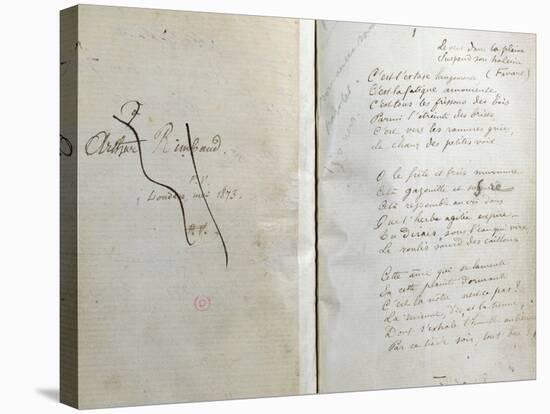 à
Arthur Rimbaud.
P.V.
Londres, mai 1873.
P.V.
1
Le vent dans la plaine
Suspend son haleine
(Favart)
C'est l'extase langoureuse
C'est la fatigue amoureuse
C'est tous les frissons des bois
Parmi l'étreinte des brises
C'est, vers les ramures grises,
Le chœur des petites voix
O le frêle et frais murmure
Cela gazouille et susurre
Cela ressemble au cri doux
Que l'herbe agitée expire..
Tu dirais, sous l'eau qui vire,
Le roulis sourd des cailloux
Cette âme qui se lamente
En cette plainte dormante
C'est la nôtre n'est-ce pas?
La mienne, dis, et la tienne,
Dont s'exhale l'humble antienne
Par ce tiède soir, tout bas?